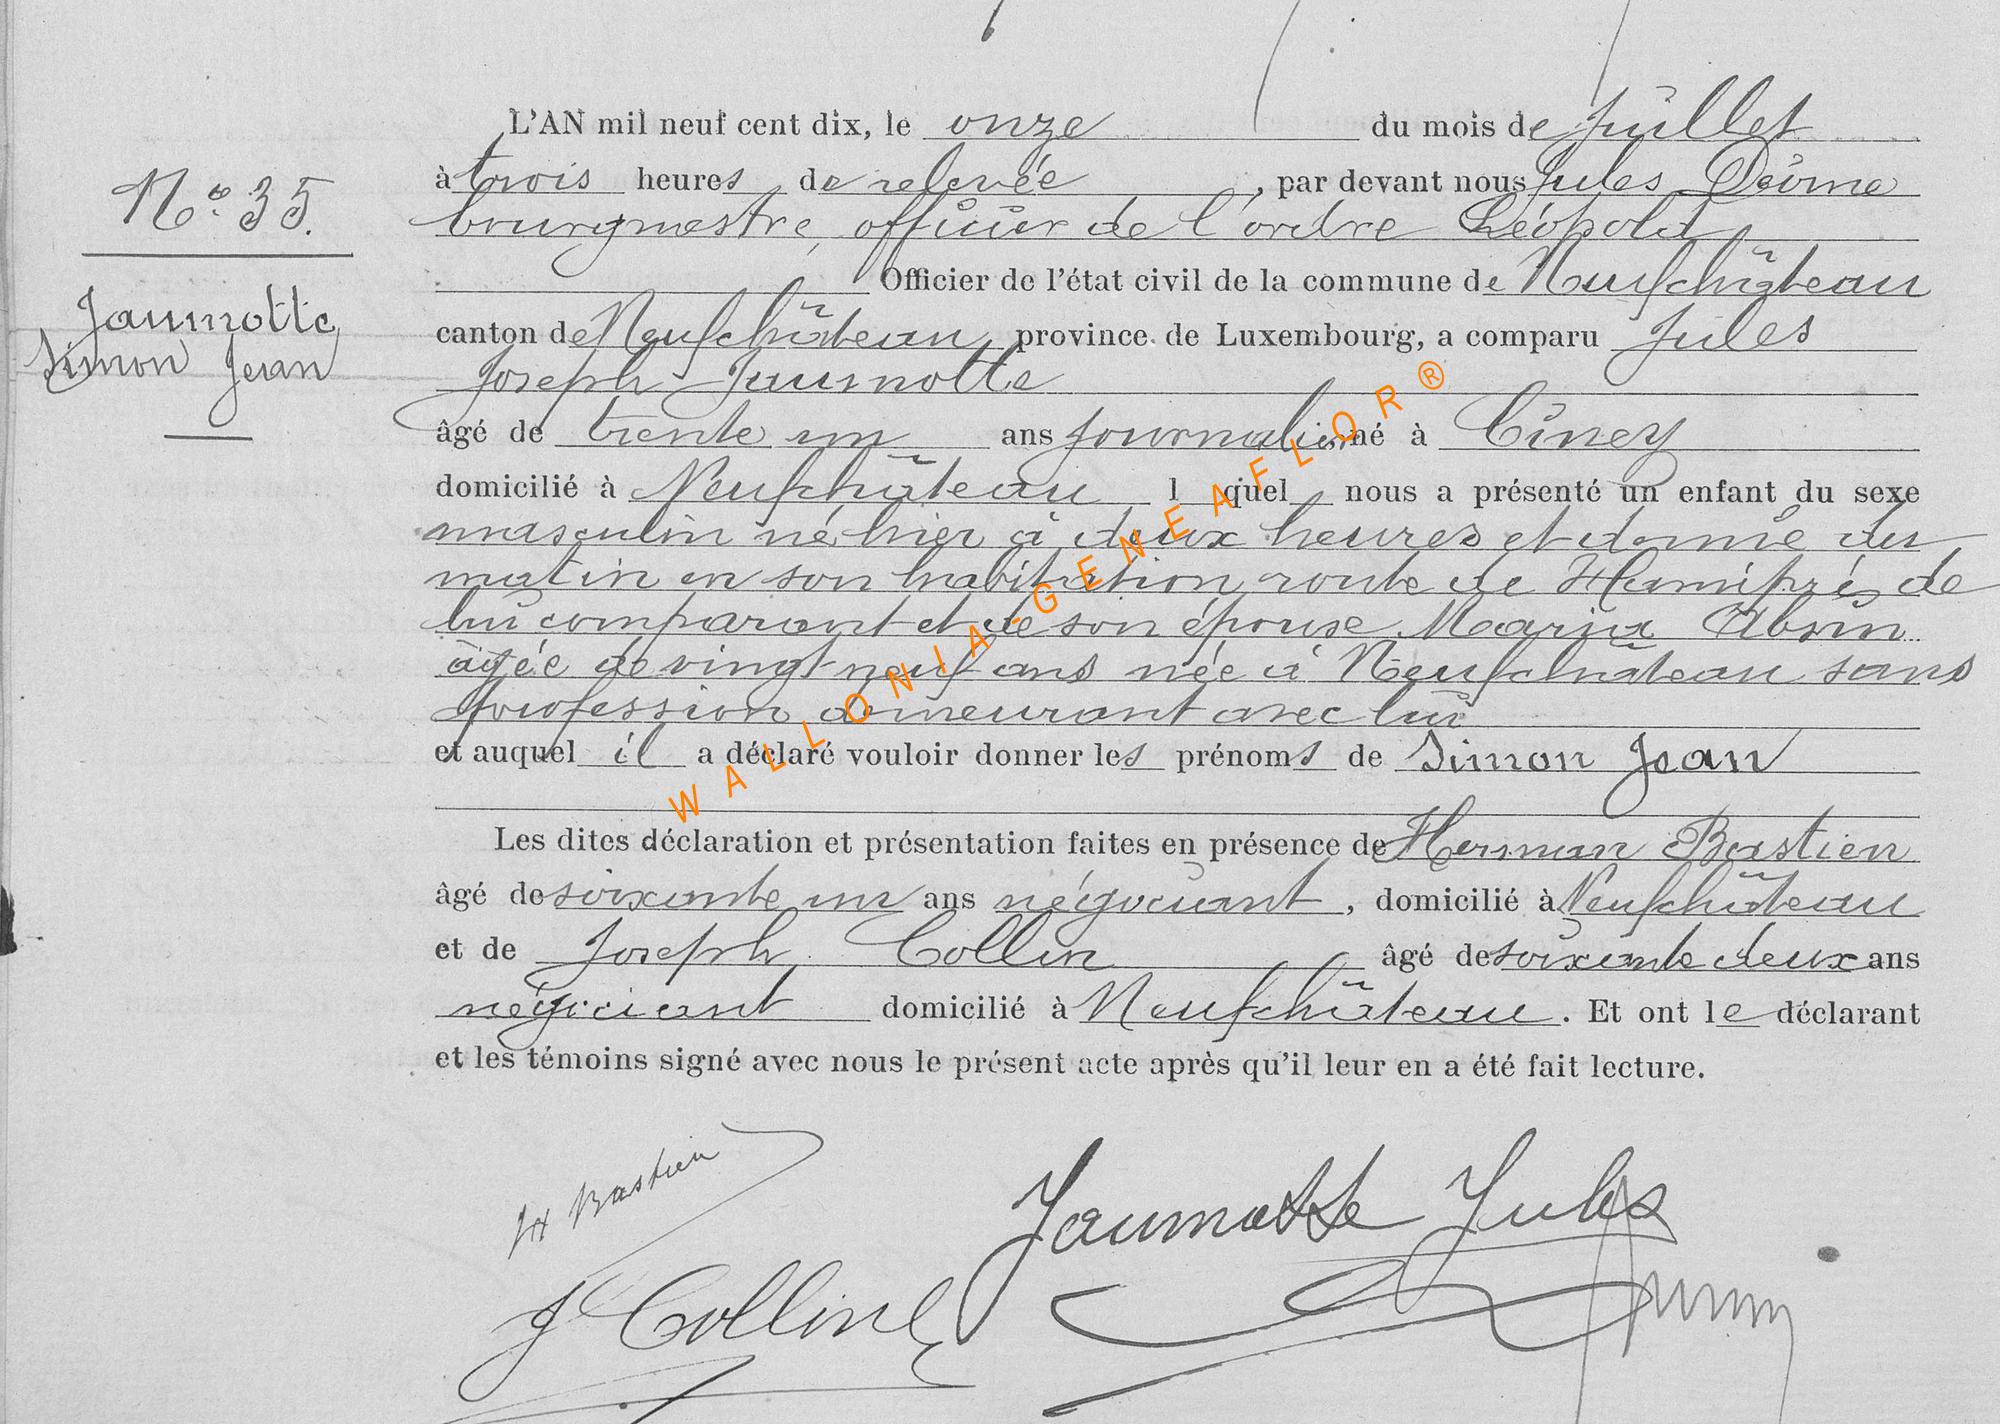 L'AN mil neuf cent dix, le onze du mois de juillet
N° 35.
à trois heures de relevée, par devant nous Jules
bourgmestre, officier de l'ordre Léopold
Officier de l'état civil de la commune de Neufchâteau
Jaumotte
Simon Jean
canton de Neufchâteau, province de Luxembourg, a comparu Jules
Joseph Jaumotte
âgé de trente un ans journalier né à Ciney
domicilié à Neufchâteau l quel nous a présenté un enfant du sexe
masculin né hier à deux heures et demie du
matin en son habitation route de Hamipré, de
lui comparant et de son épouse Maria Absin
âgée de vingt-neuf ans née à Neufchâteau sans
profession demeurant avec lui
et auquel il a déclaré vouloir donner les prénoms de Simon Jean
Les dites déclaration et présentation faites en présence de Herman Bastien
âgé de soixante un ans négociant, domicilié à Neufchâteau
et de Joseph Collin âgé de soixante deux ans
négociant domicilié à Neufchâteau. Et ont le déclarant
et les témoins signé avec nous le présent acte après qu'il leur en a été fait lecture.
H Bastien
Jaumotte Jules
J Collin
WALLONIA-GENEAFLOR®